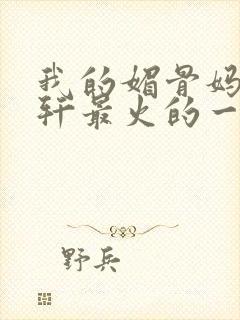 我的媚骨妈
轩最火的一
野兵